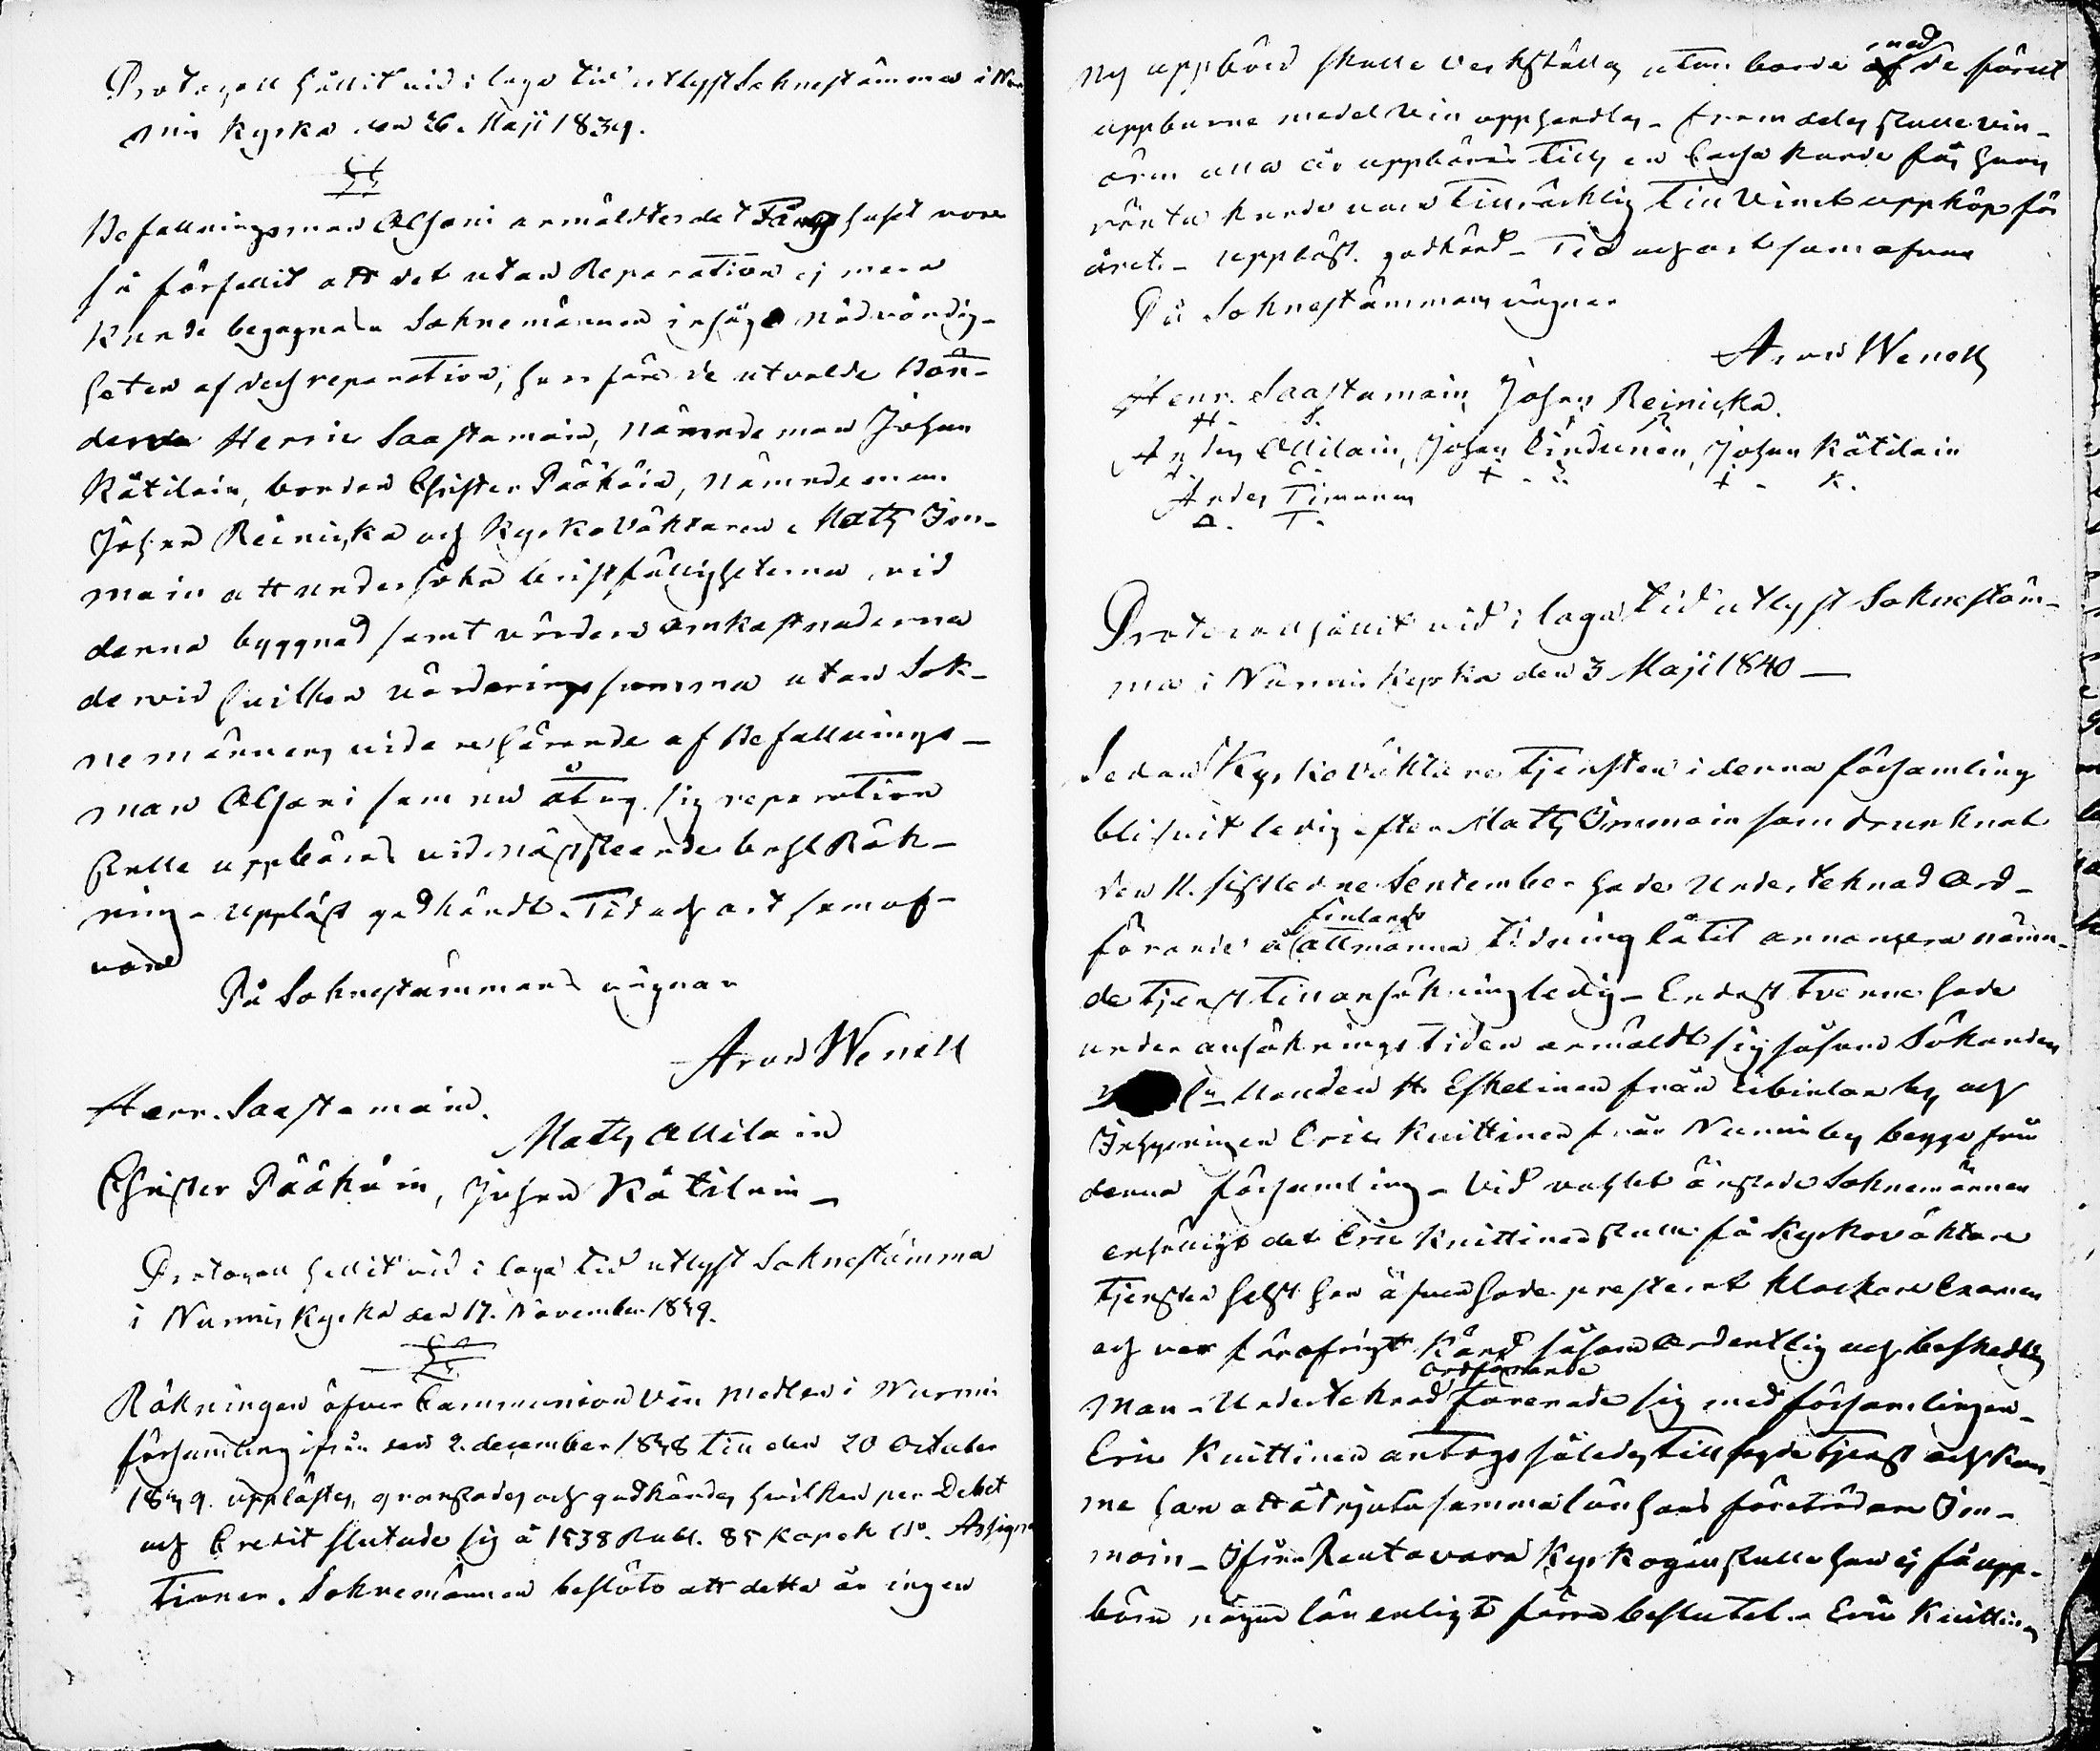 Protocoll hållit vid i laga tid utlyst Soknestämma i Nur-
mis kyrka den 26. Maji 1839.
§
Befallningsman Alfani anmäldte det Fånghuset vore
så förfallit att det utan Reparation ej mera
kunde begagnas Soknemännen insågo nödvändig-
heten af dess reparation, hvarföre de utvalde Bön-
derne Henric Saastamoin, Nämndeman Johan
Kätilain, bonden Christer Pääkäin, Nämndeman
Johan Reinicka och Kyrkoväktaren Mats Im-
main att undersöka bristfälligheterna vid
denna byggnad samt värdera omkostnaderna
dervid hvilken värderingssumma utan Sok-
nemännens vidare hörande af Befallnings-
man Alfani som nu åtog sig reparation
skulle uppbäras vid nästkommande Räk-
ning - Uppläst godkändt. Tid och ort som of-
van
På Soknestämmans vägnar
Arvid Wenell
Henr. Saastamoin.
Mats Ollilain
Christer Pääkäin, Johan Kätilain -
Protocoll hållit vid i laga tid utlyst Soknestämma
i Nurmis Kyrka den 17. November 1839.
§
Räkningen öfver Communion Vin Medlen i Nurmis
församling ifrån den 2. december 1838 till den 20 October
1839. upplästes, granskades och godkändes hvilken per Debet
och Credit slutade sig å 1538 Rubl. 85 kopek Bco. Assigna
tioner. Soknemännen beslöto att detta år ingen
ny uppbörd skulle verkställas utan borde med de förut
uppburne medel Vin upphandlas - framdeles skulle vin-
ören alla år uppbäras tills en Cassa kunde fås hvars
ränta kunde vara tillräcklig till Vinets uppköp för
året. - Uppläst. godkänd - Tid och ort som ofvan
På Soknestämmans vägnar
Arvid Wenell
Henr. Saastamoin, Johan Reinicka.
H. S. J. R.
Anders Ollilain, Johan Lindunen, Johan Kätilain
Anders Timonen
A. T.
Protocoll hållit vid i laga tid utlyst Soknestäm-
ma i Nurmis Kyrka den 3 Maji 1840 -
Sedan Kyrkoväktare Tjensten i denna församling
blifvit ledig efter Mats Immain som drunknat
den 11. sistledne September hade Undertecknad Ord-
förande å Finlands allmänna Tidning låtit annonsera nämn-
de tjenst till ansökning ledig - Endast tvenne hade
under ansöknings tiden anmäldt sig såsom Sökanden
Bonden H. Eskelinen från by och
Inhysingen Eric Kuittinen från Nurmis by begge från
denna församling - Vid vahlet önskade Soknemännen
enhälligt det Eric Kuittinen skulle få Kyrkoväktare
tjensten helst han äfven hade presterat klockare Examen
och var för öfrigt känd såsom ordentlig och beskedlig
man - Undertecknad Ordförande förenade sig med församlingen -
Eric Kuittinen antogs således till sagde tjenst och kom-
me han att åtnjuta samma lön hans företrädare Im-
main - Ifrån Rautavara Kyrkogång skulle han ej få upp-
bära någon lön enligt förra beslutet. - Eric Kuittinen